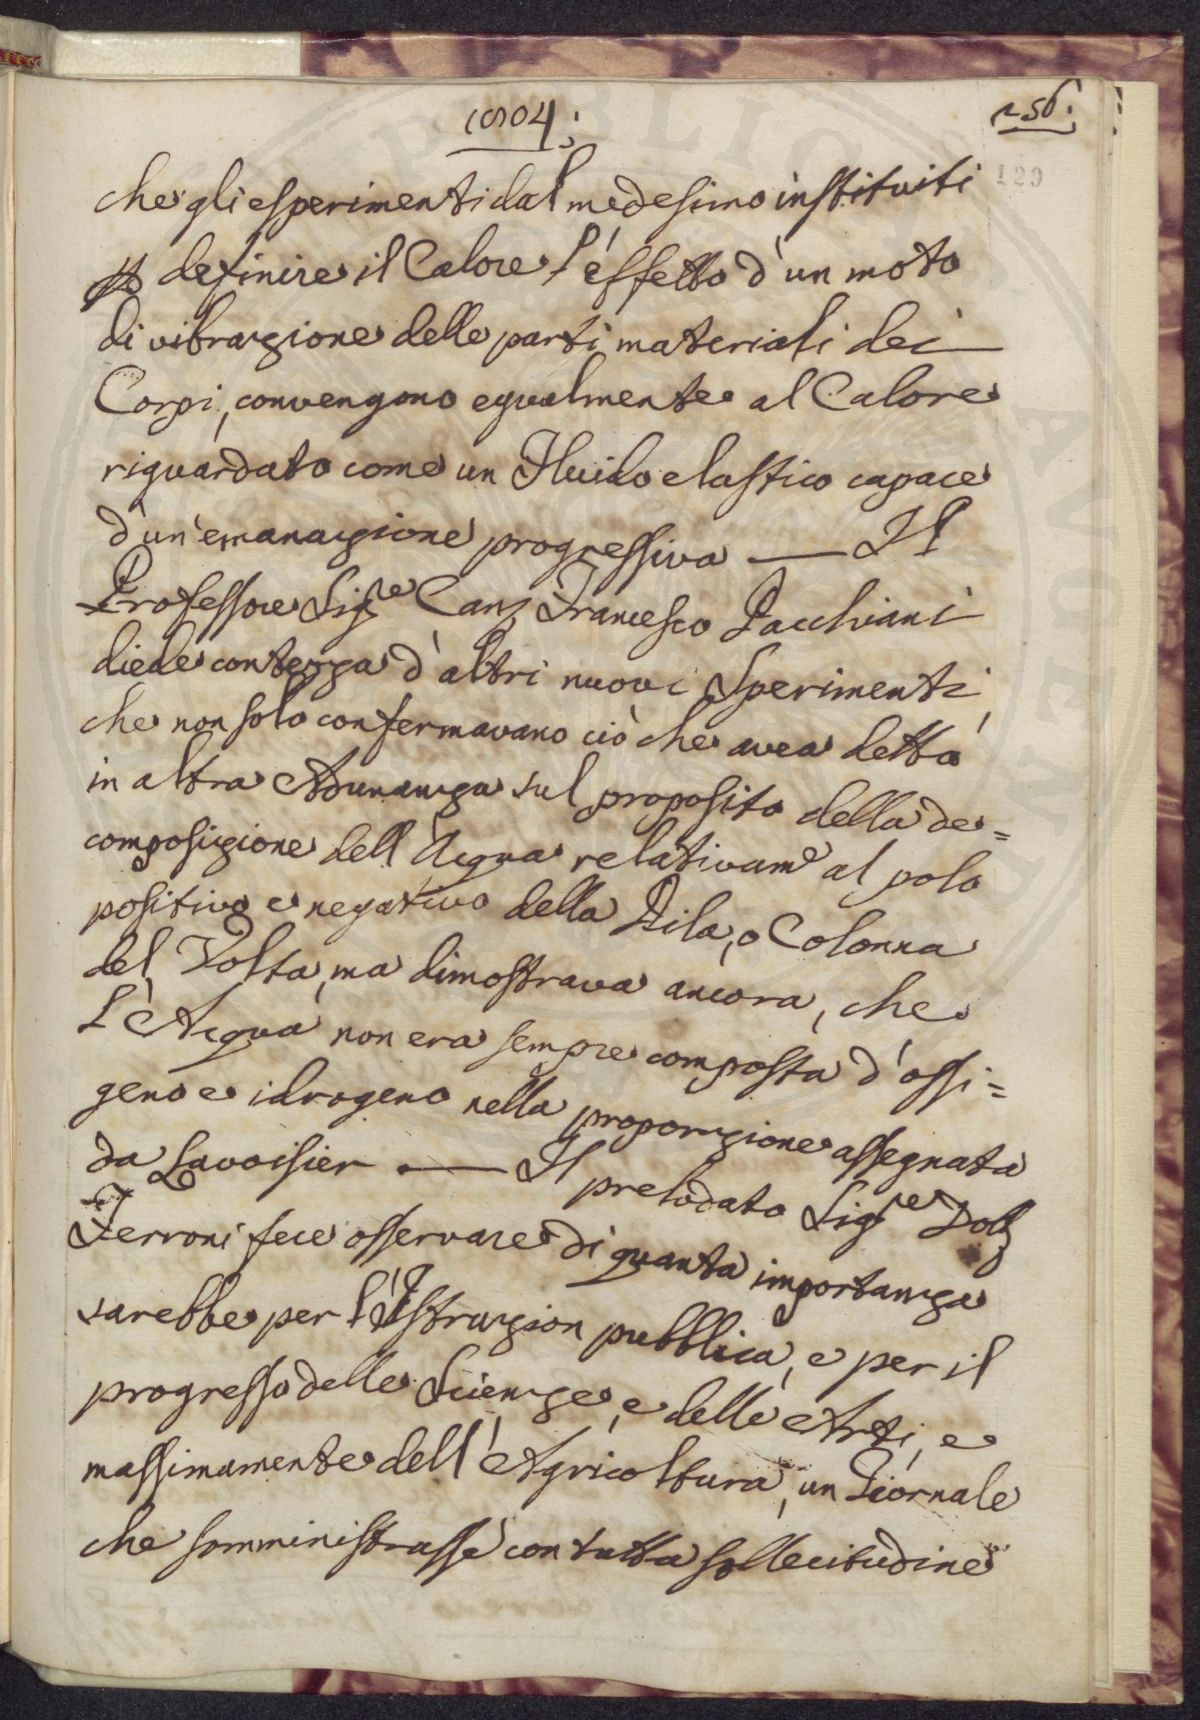 1804;
256.
129
che gli esperimenti dal medesimo instituiti
p definire il Calore l'effetto d'un moto
di vibrazione delle parti materiali dei
Corpi, convengono egualmente al Calore
riguardato come un Fluido elastico capace
d'un'emanazione progressiva — Il
Professore Sigre Canz Francesco Pacchiani
diede contezza d'altri nuovi Sperimenti,
che non solo confermavano ciò che avea detto
in altra Adunanza sul proposito della de=
composizione dell'Acqua relativame al polo
positivo e negativo della Pila, o Colonna
del Volta, ma dimostrava ancora, che
L'Acqua non era sempre composta d'ossi=
geno e idrogeno nella proporzione assegnata
da Lavoisier — Il prelodato Sigre Dotz
Ferroni fece osservare di quanta importanza
sarebbe per l'Istruzion pubblica, e per il
progresso delle Scienze, e delle Arti, e
massimamente dell'Agricoltura, un Giornale
che somministrasse con tutta sollecitudine